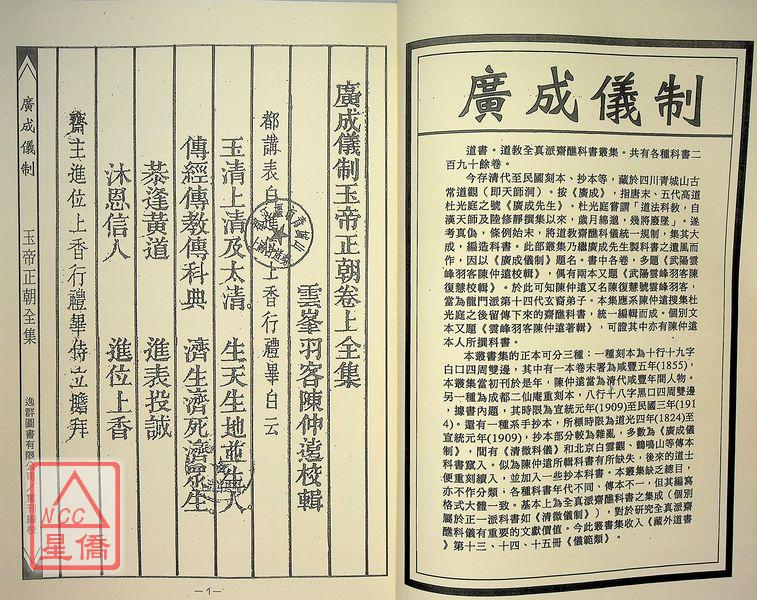 廣成儀制
道書。道教全真派齋醮科書叢集。共有各種科書二
百九十餘卷。
今存清代至民國刻本、抄本等，藏於四川青城山古
常道觀（即天師洞）。按《廣成》，指唐末、五代高道
杜光庭之號《廣成先生》。杜光庭嘗謂「道法科教，自
漢天師及陸修靜撰集以來，歲月綿邈，幾將廢墜」。遂
考真偽，條例始末，將道教齋醮科儀統一規制，集其大
成，編造科書。此部叢書乃繼廣成先生製科書之遺風而
作，因以《廣成儀制》題名。書中各卷，多題《武陽雲
峰羽客陳仲遠校輯》，偶有兩本又題《武陽雲峰羽客陳
復慧校輯》。於此可知陳仲遠又名陳復慧號雲峰羽客，
當為龍門派第十四代玄裔弟子。本集應系陳仲遠搜集杜
光庭之後留傳下來的齋醮科書，統一編輯而成。個別文
本又題《雲峰羽客陳仲遠著輯》，可證其中亦有陳仲遠
本人所撰科書。
本叢書集的正本可分三種：一種刻本為十行十九字
白口四周雙邊，其中有一本卷末署為咸豐五年(1855)，
本叢集當初刊於是年，陳仲遠當為清代咸豐年間人物。
另一種為成都二仙庵重刻本，八行十八字黑口四周雙邊
，據書內題，其時限為宣統元年(1909)至民國三年(191
4)。還有一種系手抄本，所標時限為道光四年(1824)至
宣統元年(1909)，抄本部分較為雜亂，多數為《廣成儀
制》，間有《清微科儀》和北京白雲觀、鶴鳴山等傳本
科書竄入。似為陳仲遠所輯科書有所缺失，後來的道士
便重刻續入，並加入一些抄本科書。本叢集缺乏總目，
亦不作分類，各種科書年代不同、傳本不一，但其編寫
格式大體一致。基本上為全真派齋醮科書之集成（個別
屬於正一派科書如《清微儀制》），對於研究全真派齋
醮科儀有重要的文獻價值。今此叢書集收入《藏外道書
》第十三、十四、十五冊《儀範類》。
廣成儀制玉帝正朝卷上全集
雲峯羽客陳仲遠校輯
都講表白進位上香行禮畢白云
玉清上清及太清 生天生地並生人
傳經傳教傳科典 濟生濟死濟眾生
恭逢黃道 進表投誠
沐恩信人 進位上香
齋主進位上香行禮畢侍立瞻拜
廣成儀制
玉帝正朝全集
逸群圖書有限公司／重刊編校
—1—
WCC
星僑